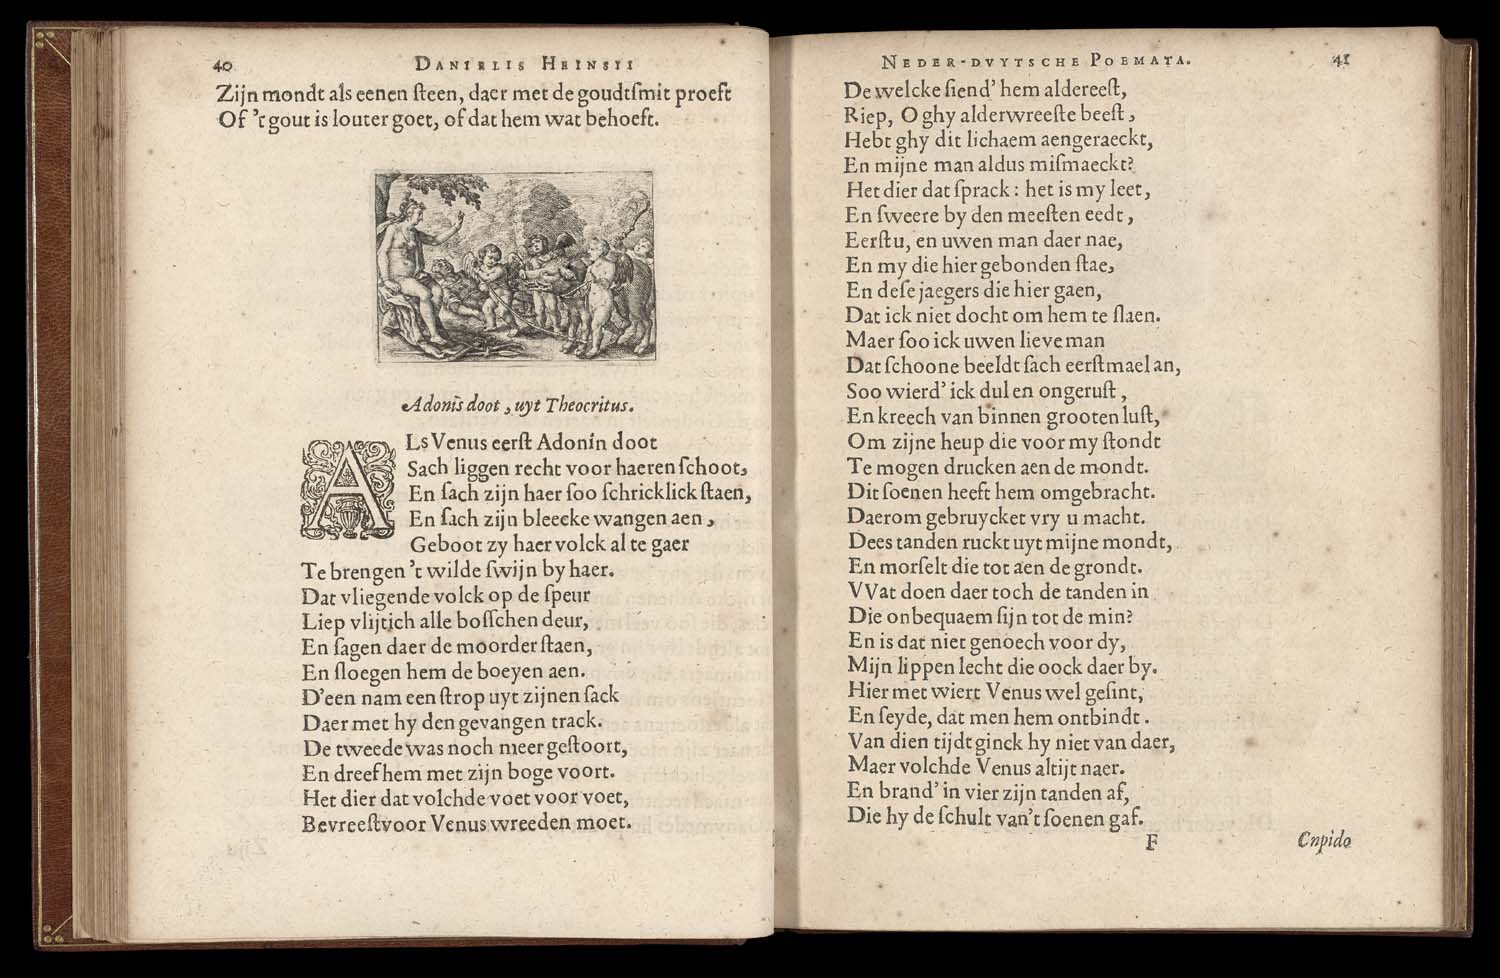 40
DANIELIS HEINSII
Zijn mondt als eenen steen, daer met de goudtsmit proeft
Of 't gout is louter goet, of dat hem wat behoeft.
Adonis doot, uyt Theocritus.
ALs Venus eerst Adonin doot
Sach liggen recht voor haeren schoot,
En sach zijn haer soo schricklick staen,
En sach zijn bleecke wangen aen,
Geboot zy haer volck al te gaer
Te brengen 't wilde swijn by haer.
Dat vliegende volck op de speur
Liep vlijtich alle bosschen deur,
En sagen daer de moorder staen,
En sloegen hem de boeyen aen.
D'een nam een strop uyt zijnen sack
Daer met hy den gevangen track.
De tweede was noch meer gestoort,
En dreef hem met zijn boge voort.
Het dier dat volchde voet voor voet,
Bevreest voor Venus wreeden moet.
NEDER-DVYTSCHE POEMATA.
41
De welcke siend' hem aldereest,
Riep, O ghy alderwreeste beest,
Hebt ghy dit lichaem aengeraeckt,
En mijne man aldus mismaeckt?
Het dier dat sprack: het is my leet,
En sweere by den meesten eedt,
Eerst u, en uwen man daer nae,
En my die hier gebonden stae,
En dese jaegers die hier gaen,
Dat ick niet docht om hem te slaen.
Maer soo ick uwen lieve man
Dat schoone beeldt sach eerstmael an,
Soo wierd' ick dul en ongerust,
En kreech van binnen grooten lust,
Om zijne heup die voor my stondt
Te mogen drucken aen de mondt.
Dit soenen heeft hem omgebracht.
Daerom gebruycket vry u macht.
Dees tanden ruckt uyt mijne mondt,
En morselt die tot aen de grondt.
VVat doen daer toch de tanden in
Die onbequaem sijn tot de min?
En is dat niet genoech voor dy,
Mijn lippen lecht die oock daer by.
Hier met wiert Venus wel gesint,
En seyde, dat men hem ontbindt.
Van dien tijdt ginck hy niet van daer,
Maer volchde Venus altijt naer.
En brand' in vier zijn tanden af,
Die hy de schult van't soenen gaf.
F
Cnpido